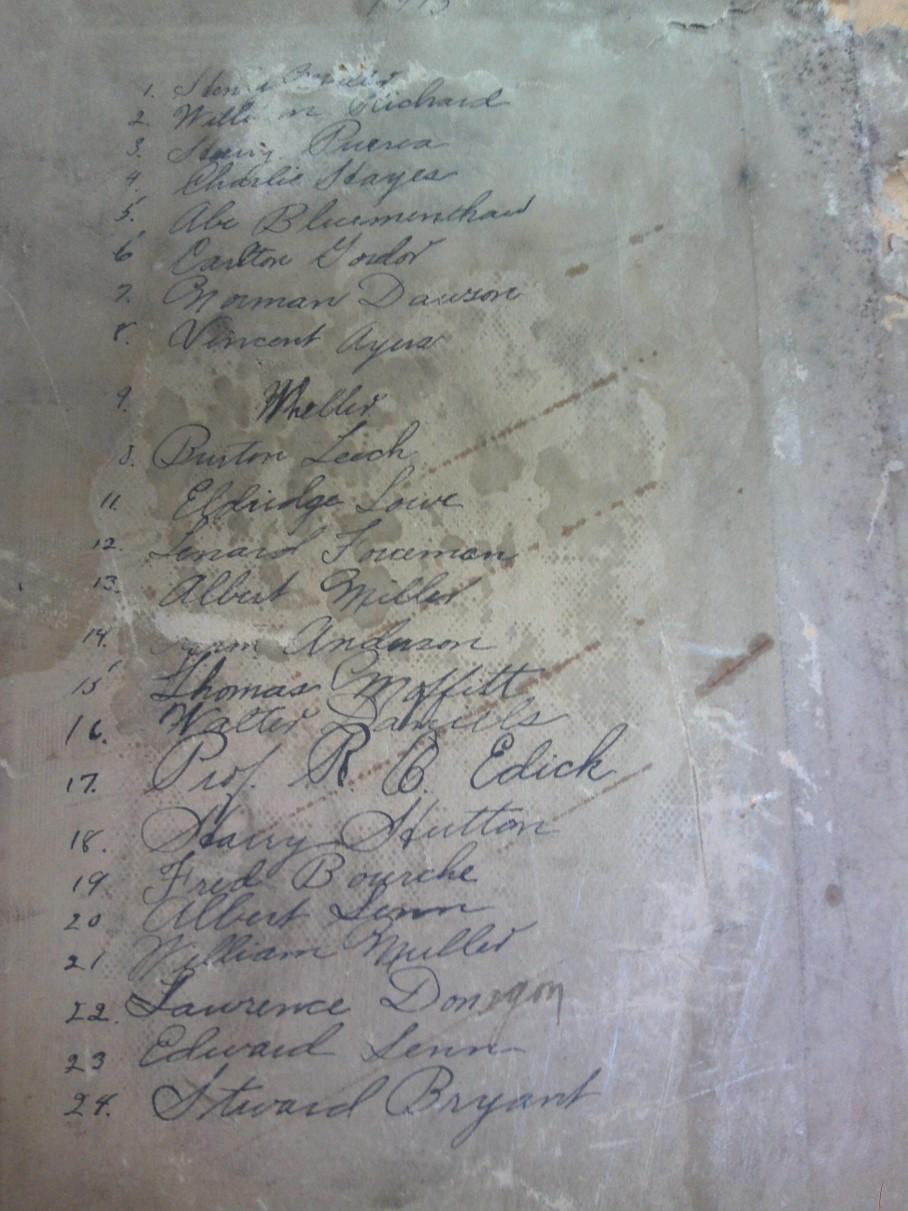 1913
1.
2. William Richard
3. Harry
4 Charlie Hayes
5. Abe Blumenthaw
6 Carlton
7. Norman Dawson
8. Vincent Ayers
9. Wheller
Burton Leech
11. Eldridge Lowe
12. Lenard Foreman
13. Albert Miller
14. Anderson
15 Thomas Moffitt
16. Walter Daniels
17. Prof. R. C. Edick
18. Harry Hutton
19 Fred Bourche
20 Albert Senn
21 William Muller
22. Lawrence Donegon
23 Edward Senn
24. Steward Bryant